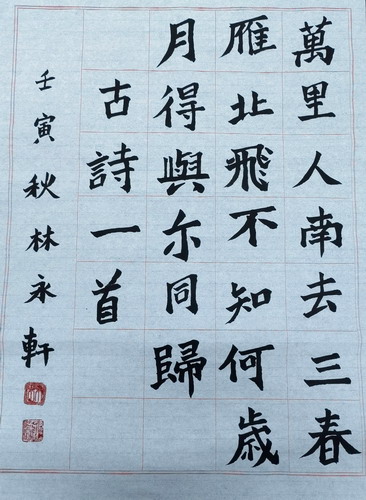 萬里人南去三春
雁北飛不知何歲
月得與尒同歸
古詩一首
壬寅秋林永軒